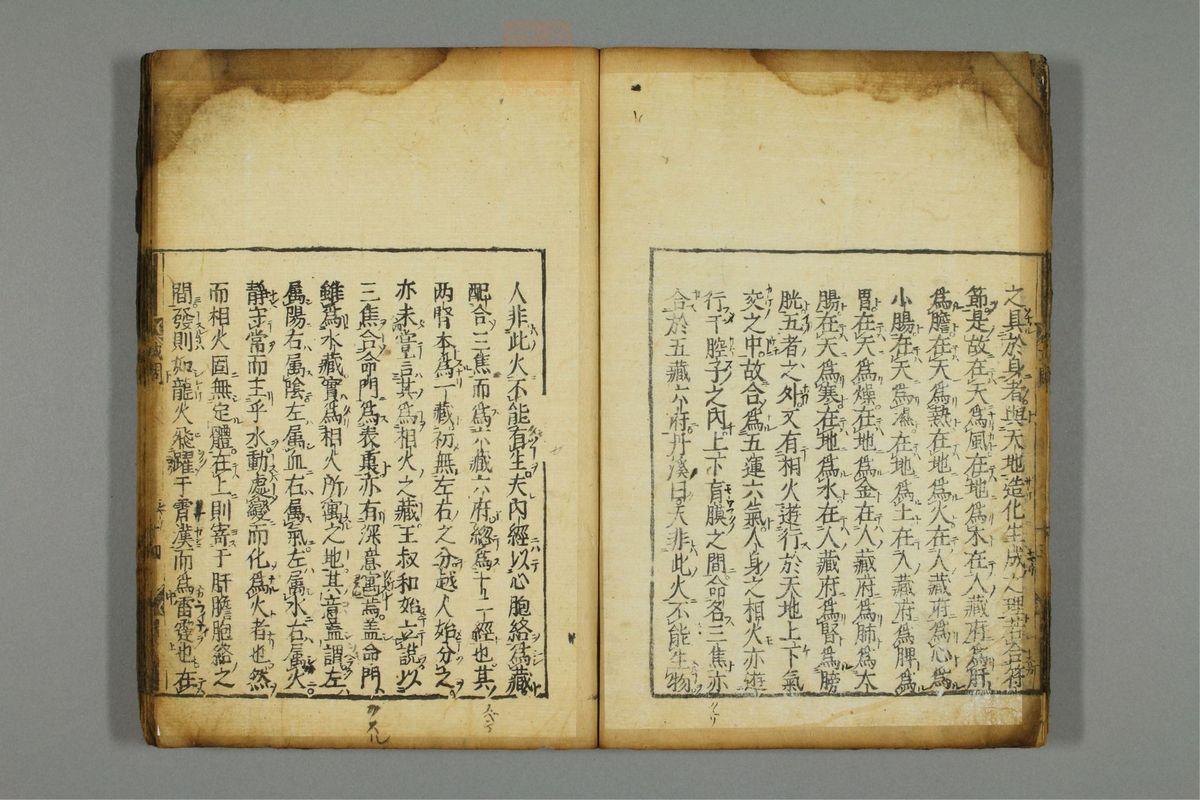 之具於身者與天地造化生成之理若合符
節是故在天爲風在地爲木在人藏府爲肝
爲膽在天爲熱在地爲火在人藏府爲心爲
小腸在天爲濕在地爲土在人藏府爲脾爲
胃在天爲燥在地爲金在人藏府爲肺爲大
腸在天爲寒在地爲水在人藏府爲腎爲膀
胱五者之外又有相火遊行於天地上下氣
交之中故合爲五運六氣人身之相火亦遊
行于腔子之內上下肓膜之間命名三焦亦
合於五藏六府丹溪曰天非此火不能生物
人非此火不能有生夫內經以心胞絡爲藏
配合三焦而爲六藏六府總爲十二經也其
两腎本爲一藏初無左右之分越人始分之
亦未嘗言其爲相火之藏王叔和始立說以
三焦合命門爲表裏亦有深意寓焉蓋命門
雖爲水藏實爲相火所寓之地其意蓋謂左
属陽右属陰左属血右属氣左属水右属火
静守常而主乎水動處變而化爲火者也然
而相火固無定體在上則寄于肝膽胞絡之
間發則如龍火飛躍于霄漢而爲雷霆也在